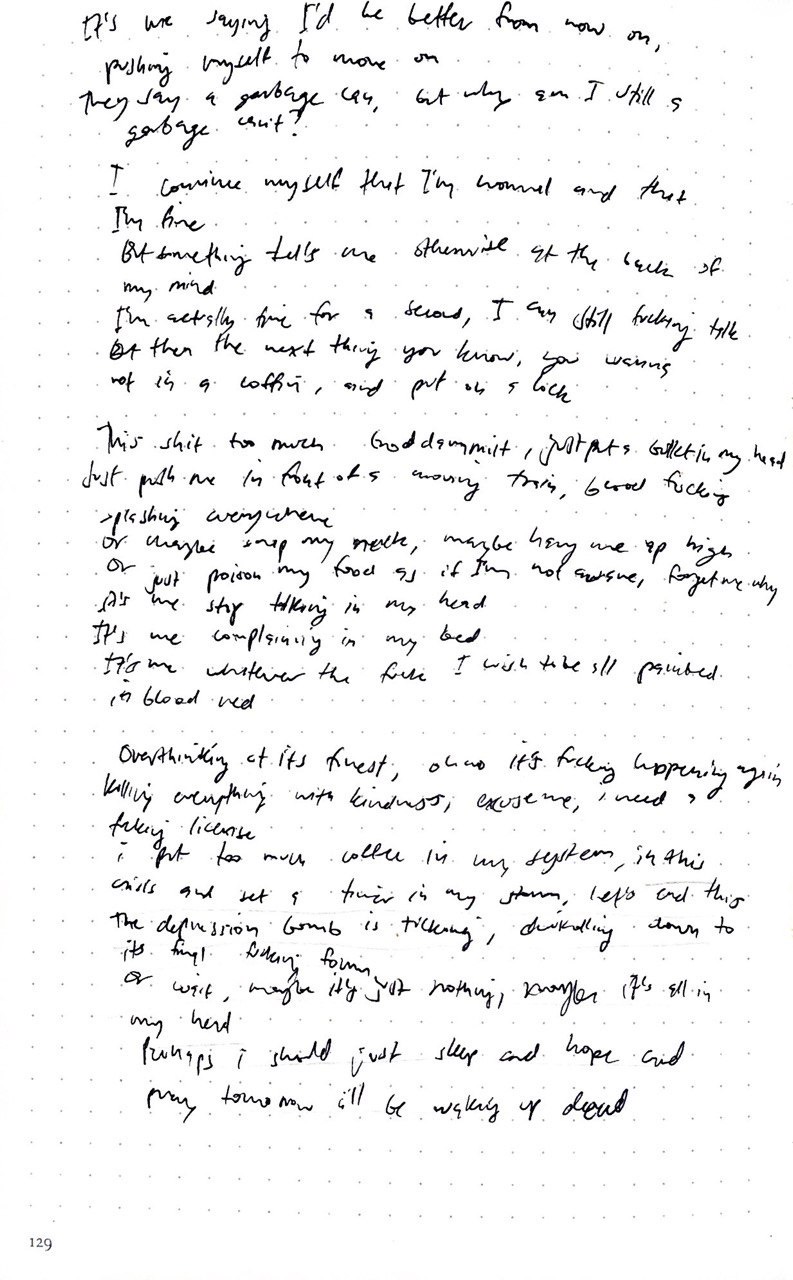 It's me saying I'd be better from now on,
pushing myself to move on
They say a garbage can, but why am I still a
garbage can't?
I convince myself that I'm normal and that
I'm fine
But something tells me otherwise at the back of
my mind
I'm actually fine for a second, I can still fucking talk
But then the next thing you know, you wanna
rot in a coffin, and put on a lock
This shit too much Goddammit, just put a bullet in my head
Just push me in front of a moving train, blood fucking
splashing everywhere
Or maybe snap my neck, maybe hang me up high
Or just poison my food as if I'm not aware, forget me why
It's me stop talking in my head
It's me complaining in my bed
It's me whatever the fuck I wish to be all painted
in blood red
Overthinking at its finest, oh no it's fucking happening again
killing everything with kindness, excuse me, i need a
fucking license
i put too much coffee in my system, in this
crisis and set a timer in my, let's end this
The depression bomb is ticking, down to
its final fucking form
Or wait, maybe it's just nothing, maybe it's all in
my head
Perhaps i should just sleep and hope and
pray tomorrow i'll be waking up dead
129